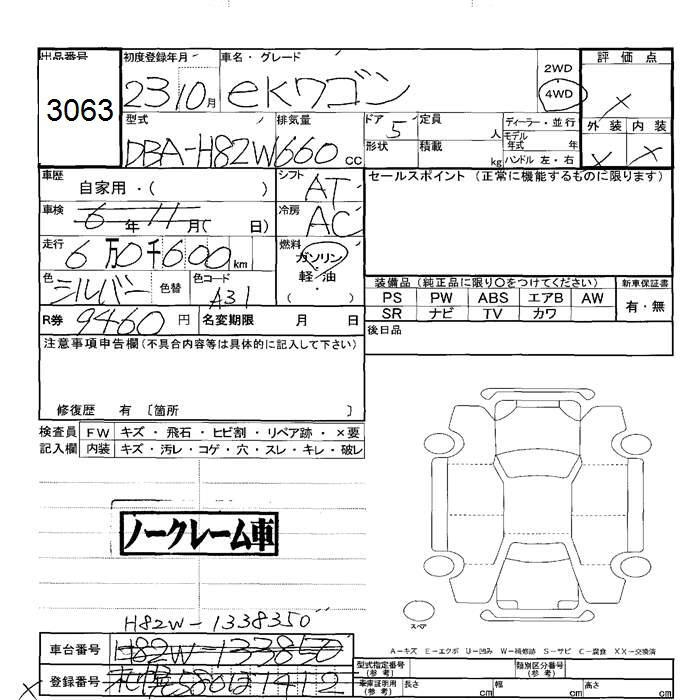 出品番号 初度登録年月 車名・グレード 2WD 評価点
3063 23 10月 eKワゴン 4WD ×
型式 排気量 ドア 5 定員 人 ディーラー・並行 外装 内装
DBA-H82W 660cc 形状 積載 kg モデル年式 年 × ×
ハンドル 左・右
車歴 自家用・( ) シフト AT セールスポイント (正常に機能するものに限ります)
車検 6年11月( 日) 冷房 AC
走行 6万0千600km 燃料 ガソリン
軽油
( )
色 シルバー 色替 色コード A31 装備品 (純正品に限り○をつけてください) 新車保証書
PS PW ABS エアB AW 有・無
R券 9460円 名変期限 月 日 SR ナビ TV カワ
後日品
注意事項申告欄(不具合内容等は具体的に記入して下さい)
修復歴 有 〔箇所 〕
検査員 FW キズ・飛石・ヒビ割・リペア跡・×要
記入欄 内装 キズ・汚レ・コゲ・穴・スレ・キレ・破レ
ノークレーム車
スペア
H82W-1338350
車台番号 H82W-133850
A−キズ E−エクボ U−凹み W−補修跡 S−サビ C−腐食 XX−交換済
型式指定番号(参考) 類別区分番号(参考)
× 登録番号 580 1412
車庫証明用(参考) 長さ cm 幅 cm 高さ cm